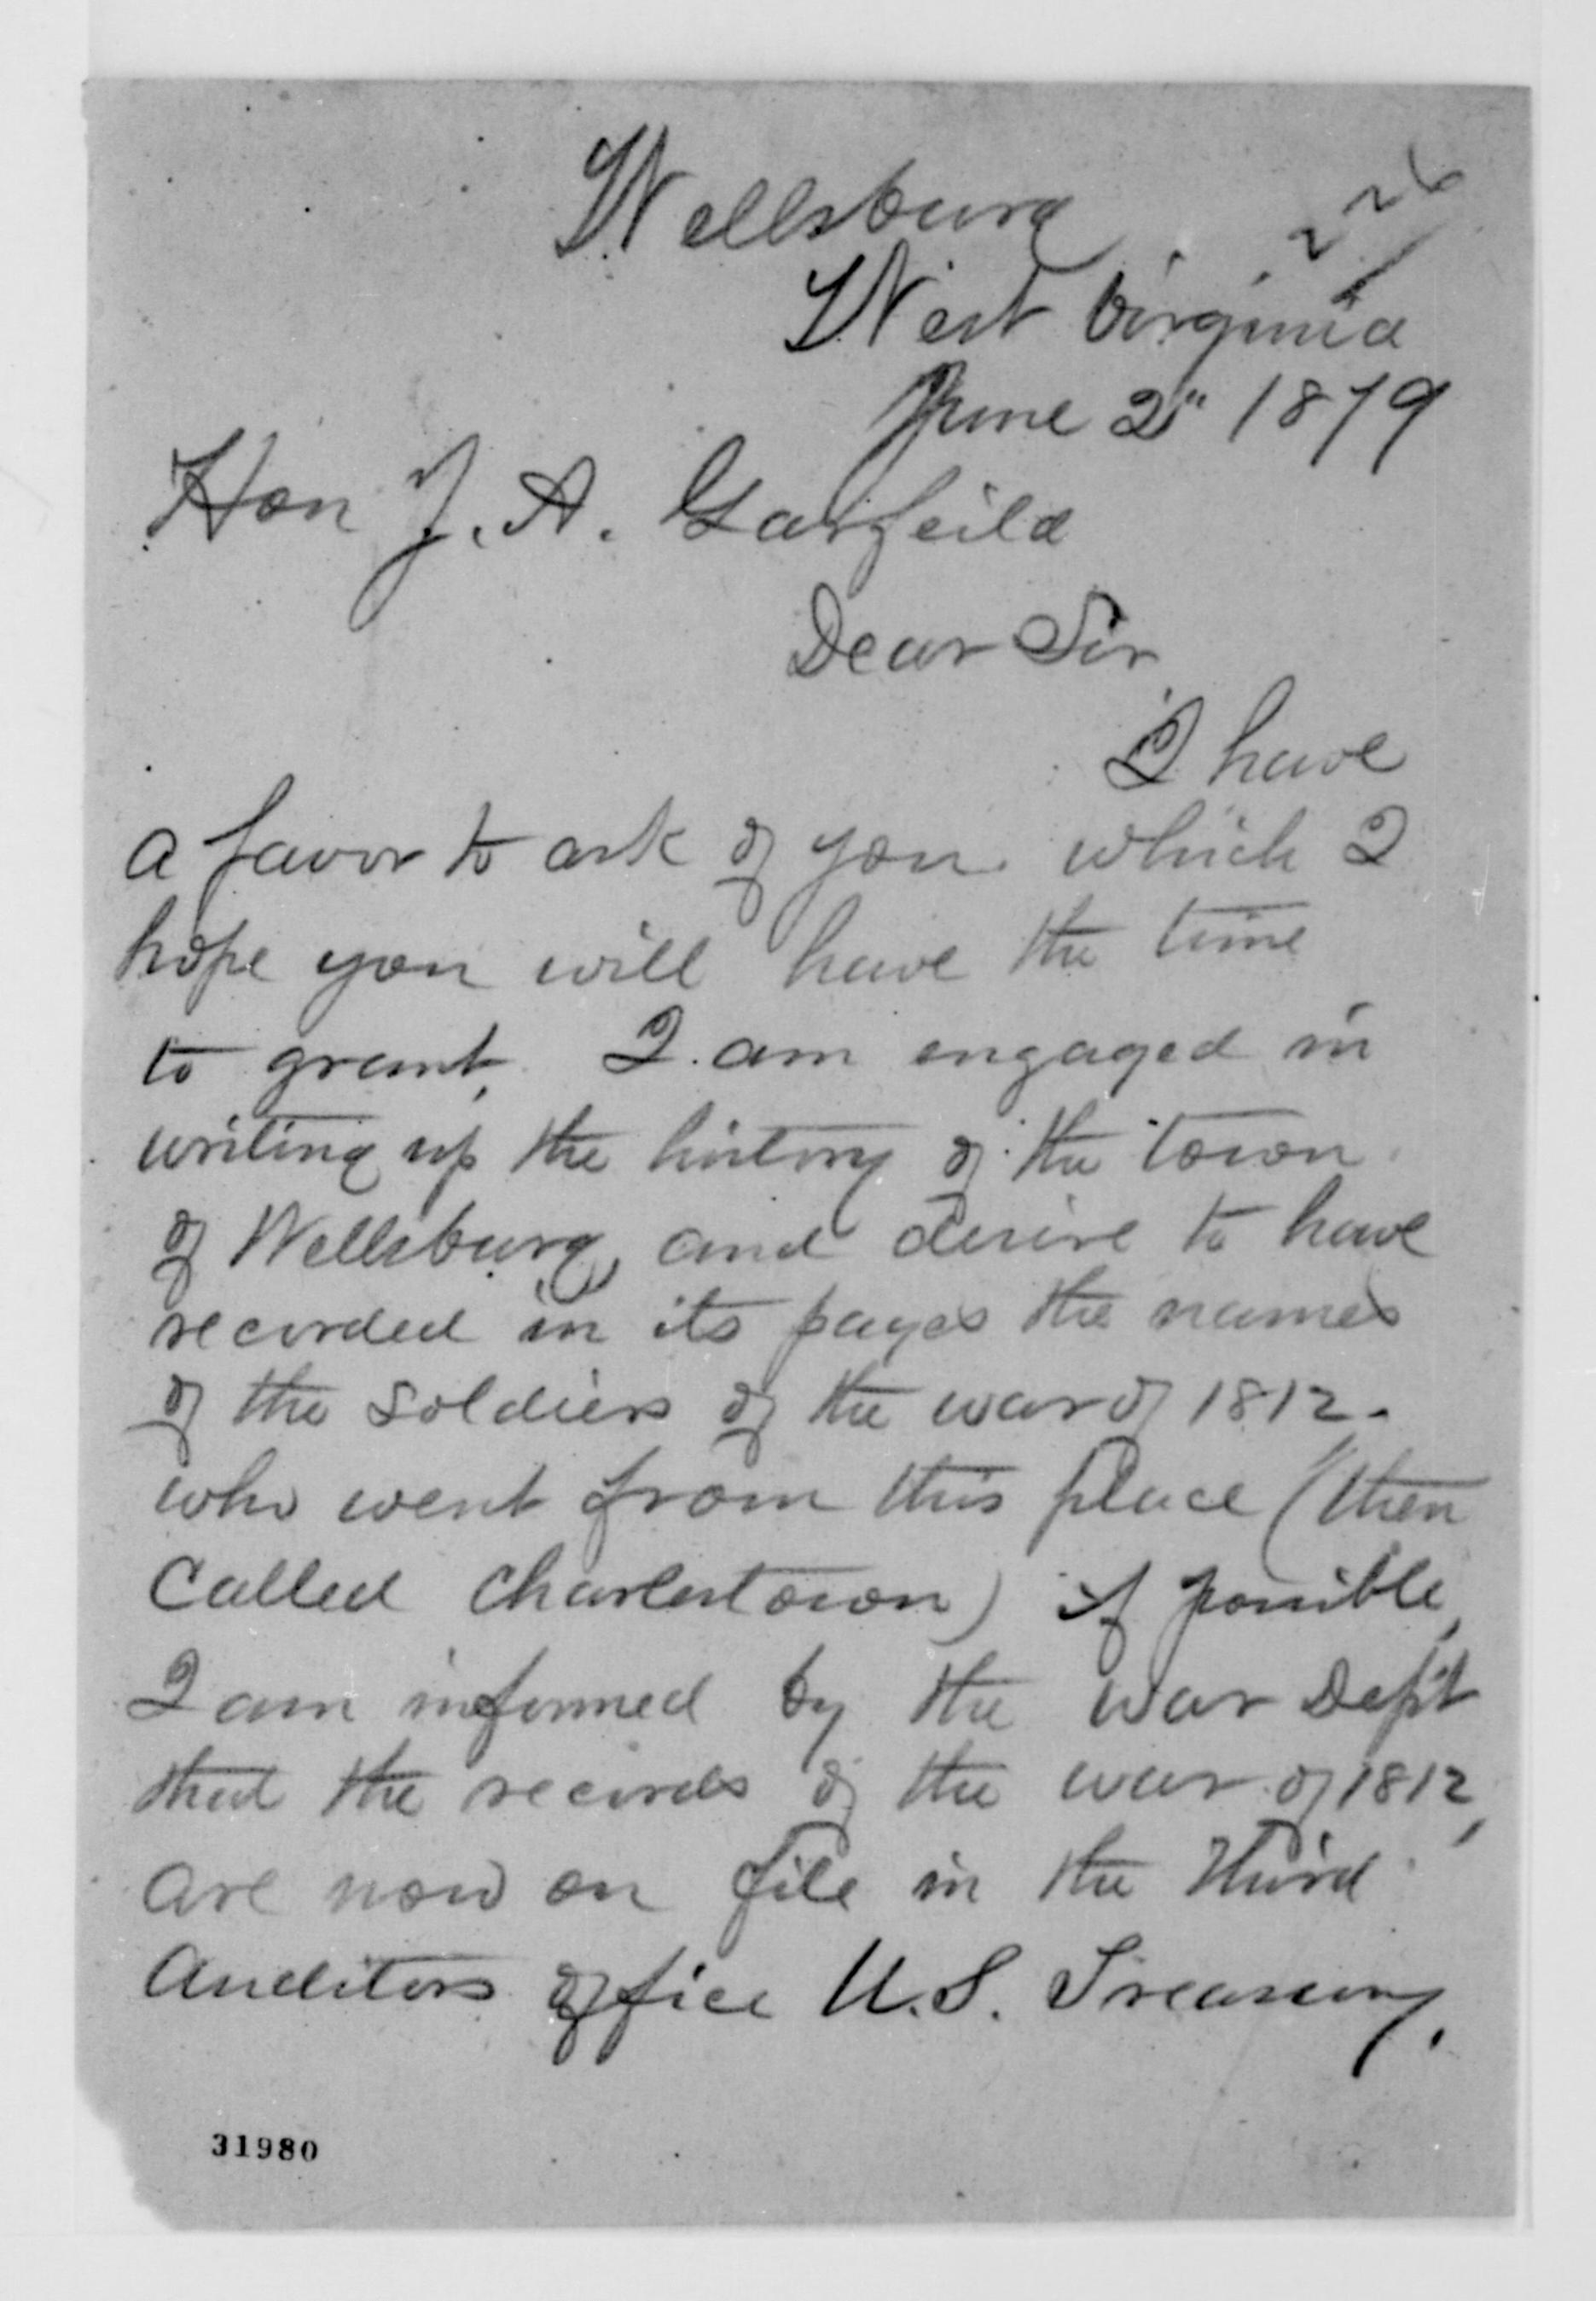 Wellsburg
226
West Virginia
June 2" 1879
Hon J. A. Garfeild
Dear Sir
I have
a favor to ask of you which I
hope you will have the time
to grant. I am engaged in
writing up the history of the town
of Wellsburg, and desire to have
recorded in its pages the names
of the soldiers of the war of 1812.
who went from this place (then
Called Charlestown) if possible,
I am informed by the War Dept
that the records of the war of 1812,
are now on file in the Third
Auditors office U.S. Treasury.
31980